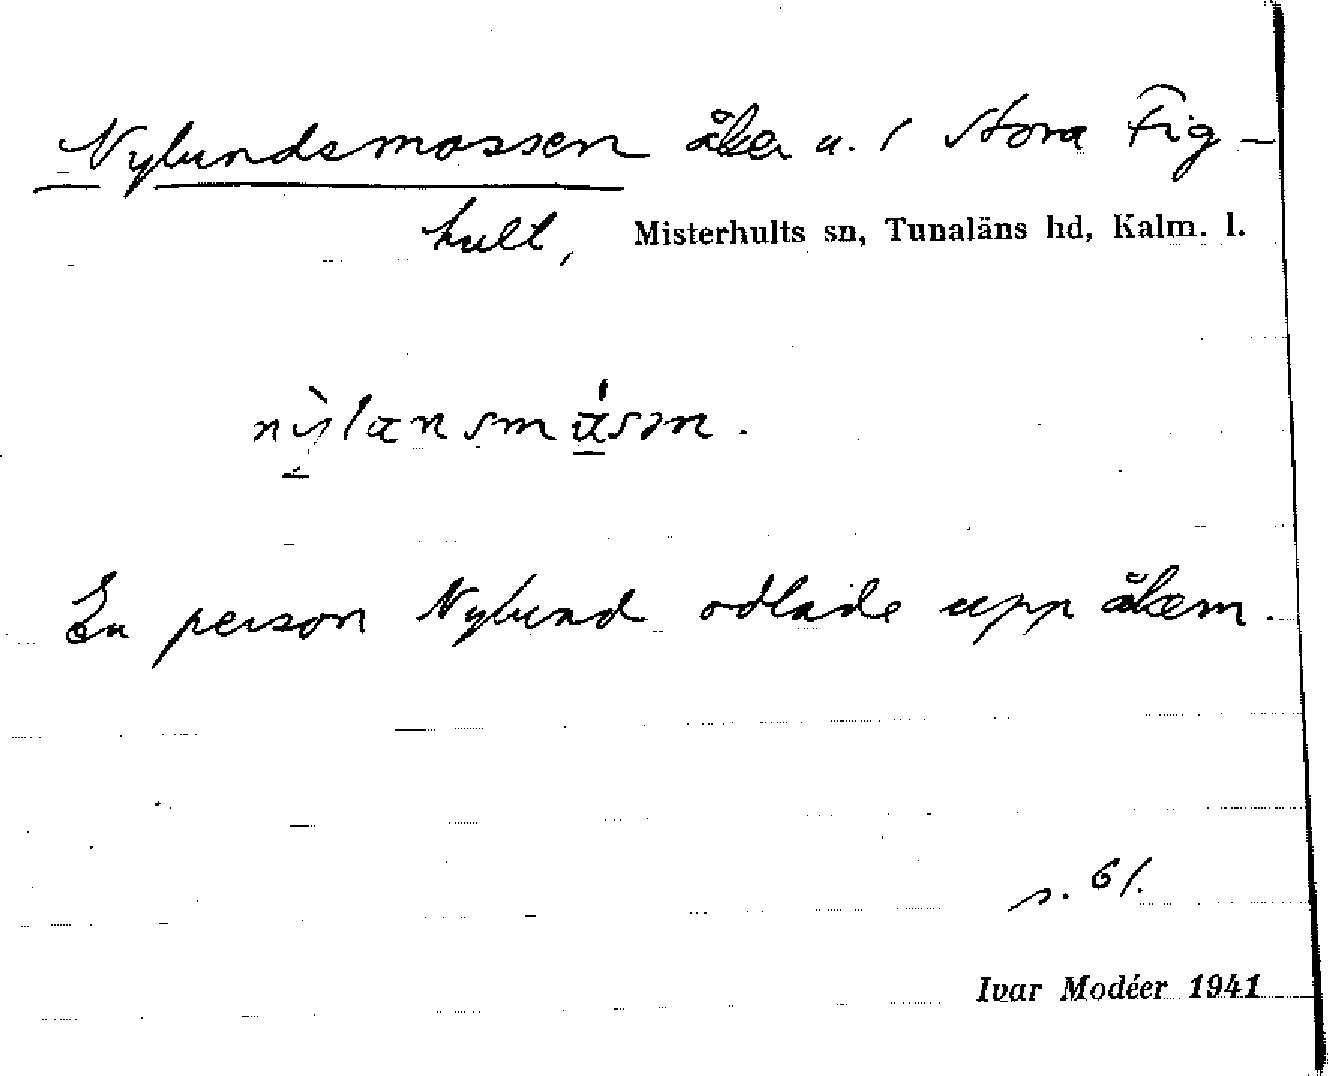 Nylundsmossen åker u. 1 Stora Fig-
hult, Misterhults sn, Tunaläns hd, Kalm. l.
En person Nylund odlade upp åkern.
s. 61.
Ivar Modéer 1941